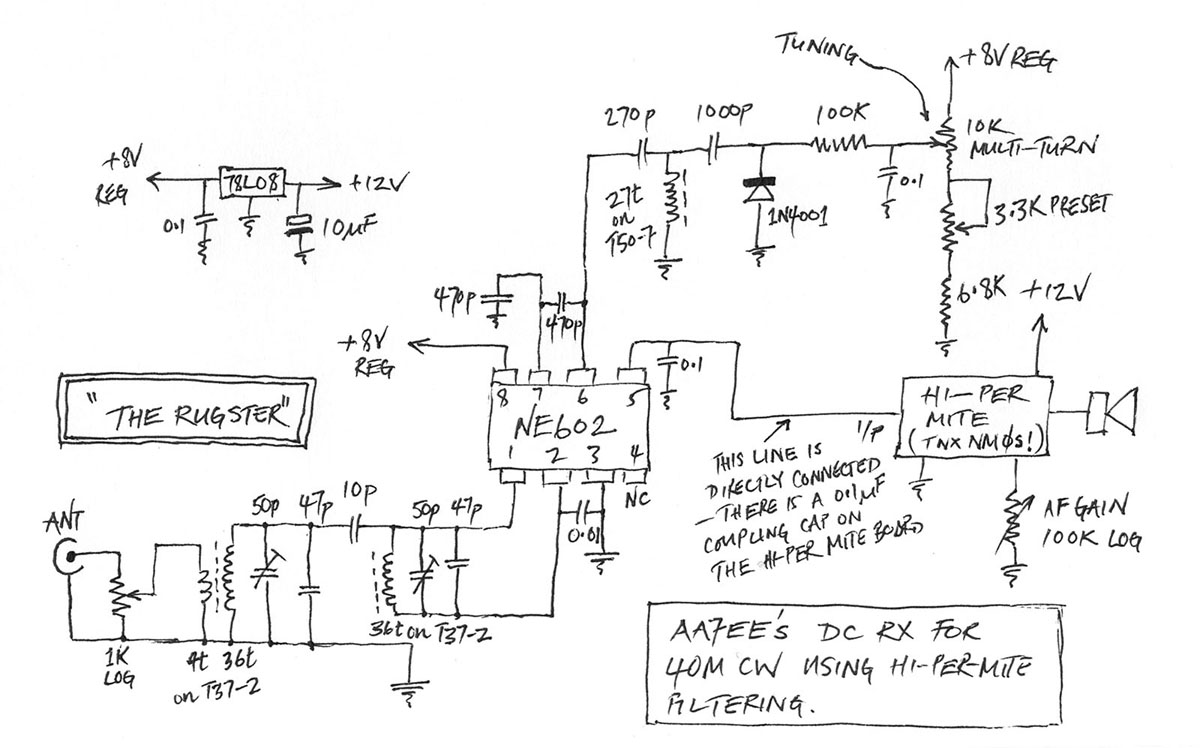 TUNING
+8V REG
270p
1000p
100K
10K
MULTI-TURN
+8V
REG
78L08
+12V
0.1
10µF
27t
on
T50-7
1N4001
0.1
3.3K PRESET
6.8K
+12V
470p
470p
+8V
REG
0.1
8 7 6 5
NE602
1 2 3 4
NC
"THE RUGSTER"
HI-PER
MITE
(TNX NMØS!)
I/P
THIS LINE IS
DIRECTLY CONNECTED
– THERE IS A 0.1µF
COUPLING CAP ON
THE HI-PER MITE BOARD
AF GAIN
100K LOG
ANT
50p
47p
10p
50p
47p
0.01
1K
LOG
4t 36t
on T37-2
36t on T37-2
AA7EE's DC RX FOR
40M CW USING HI-PER-MITE
FILTERING.